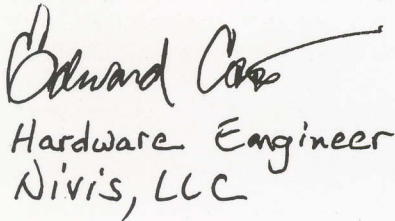 Edward
Hardware Engineer
Nivis, LLC